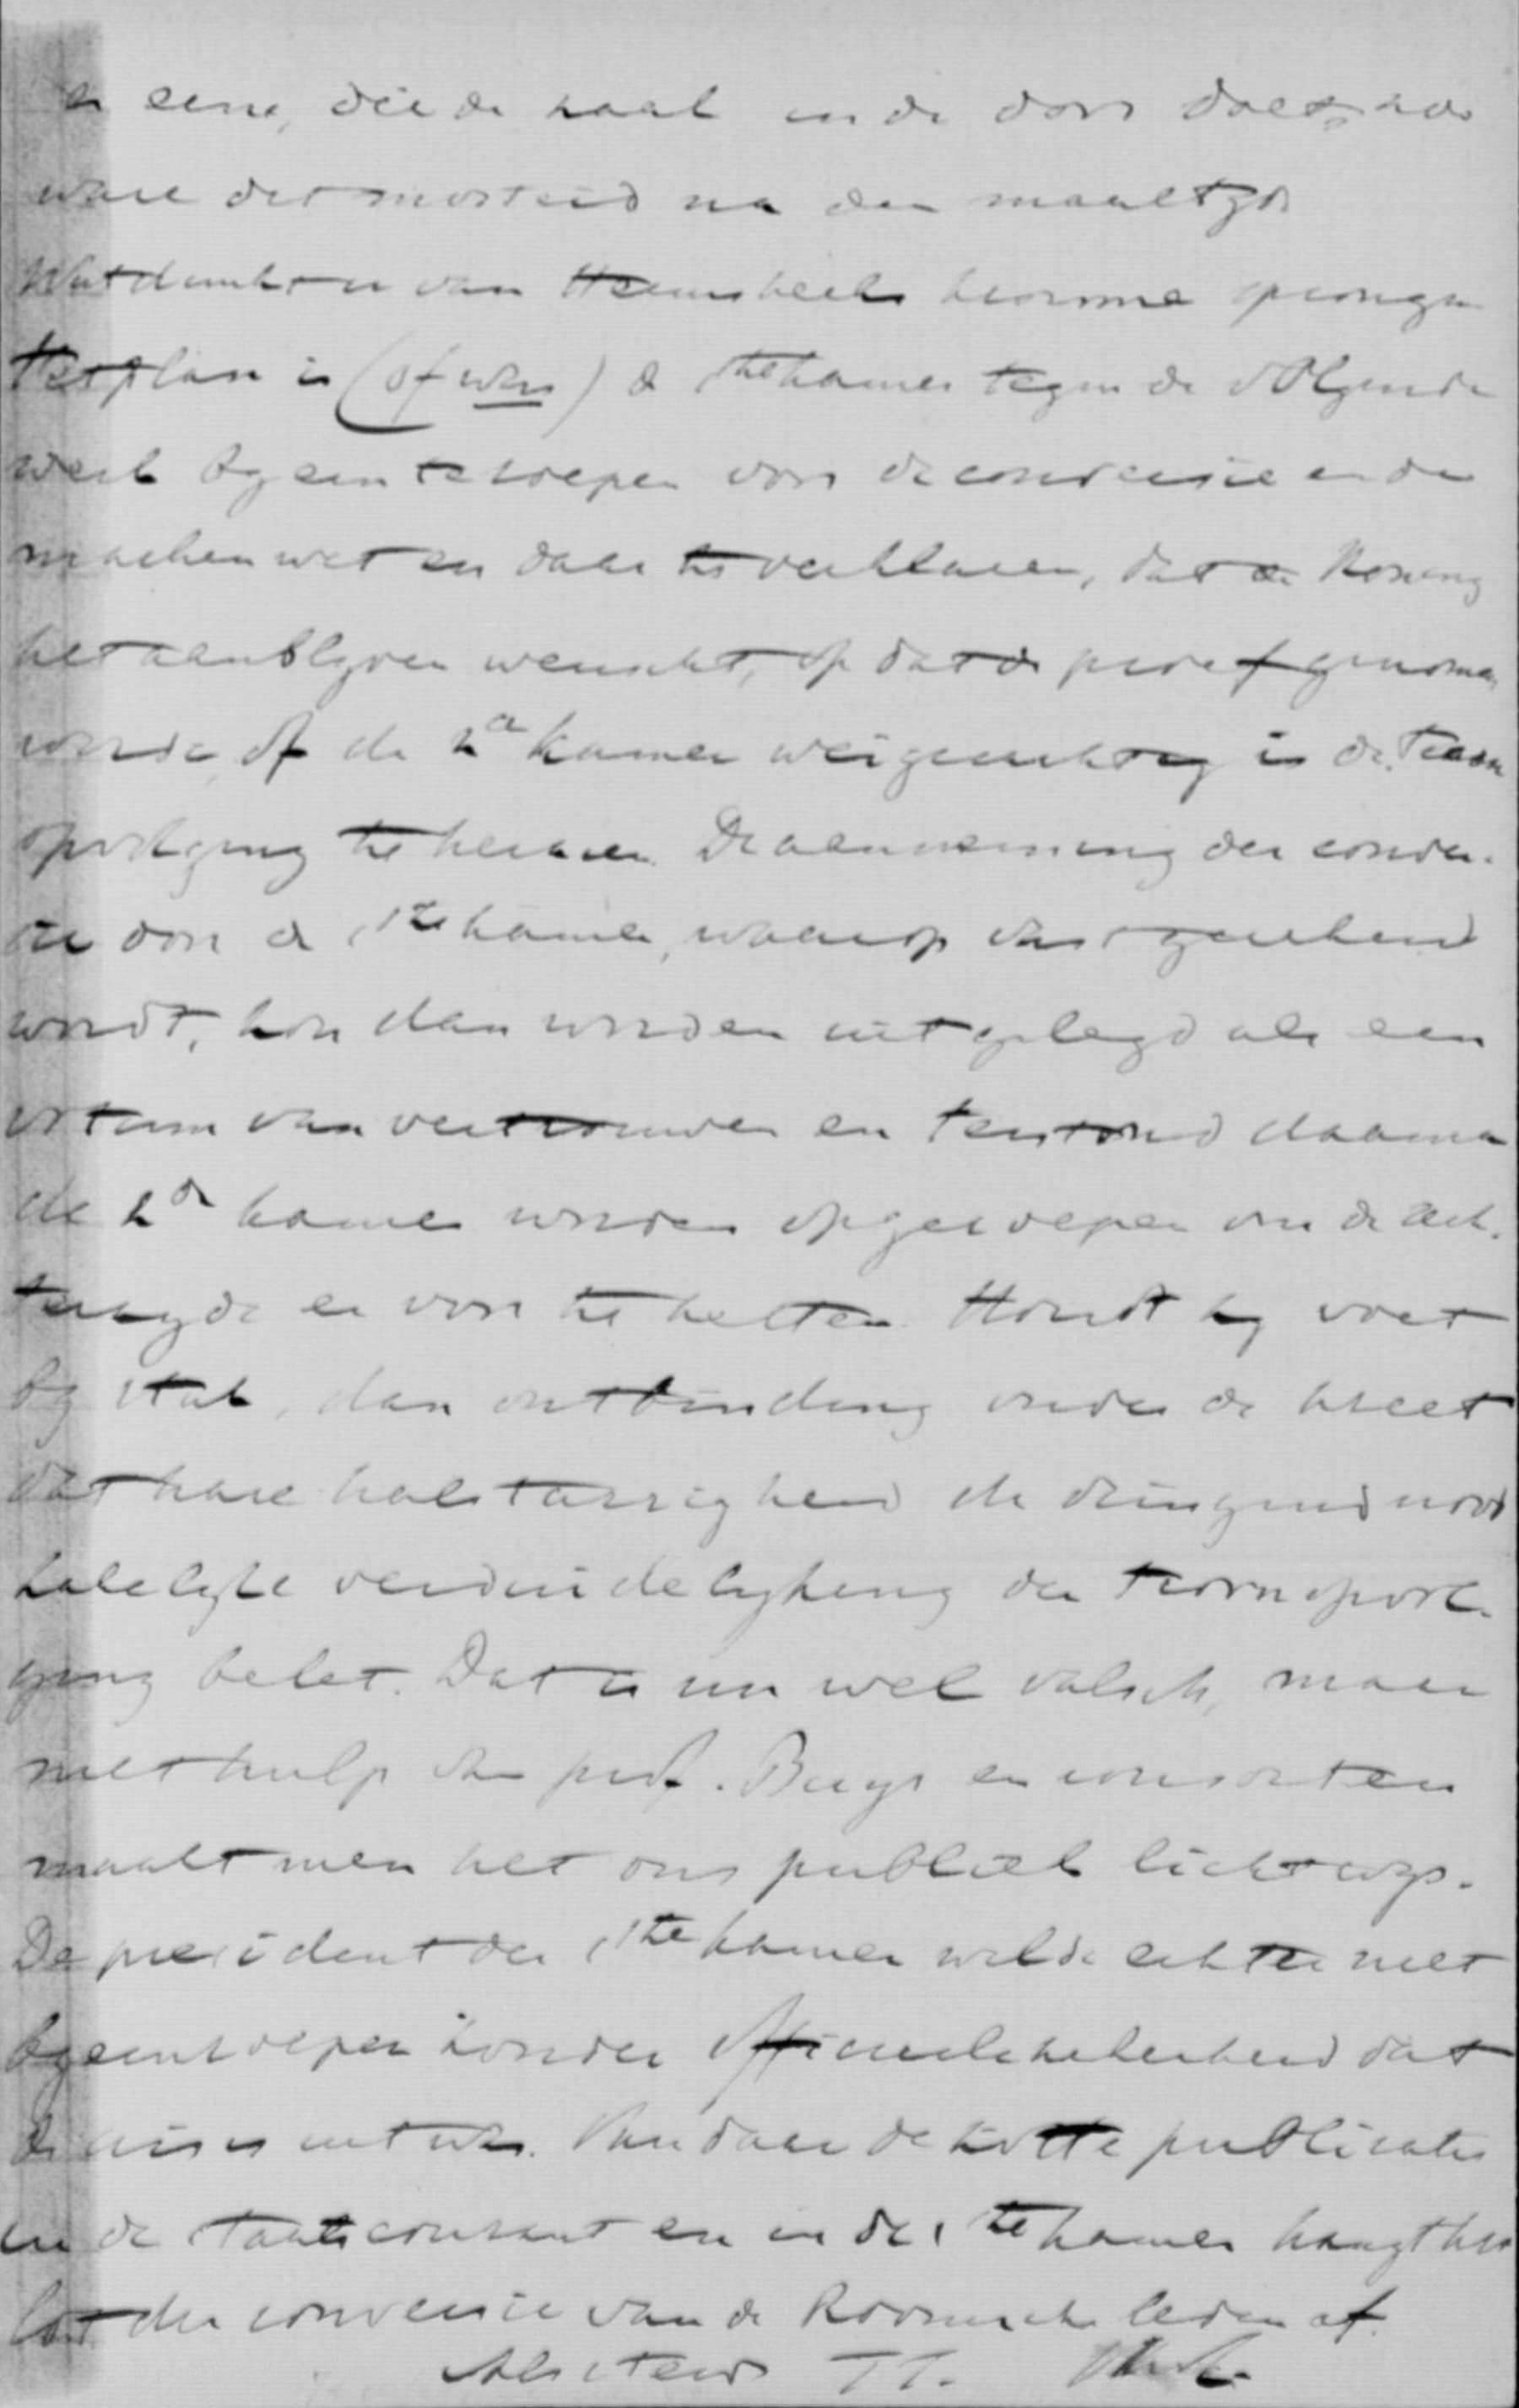 er eene, die de zaal in de doos doet, als
ware het mosterd na den maaltijd.
Wat dunkt u van Heemskerks kromme sprongen
Het plan is (of was) de 1ste kamer tegen de volgende
week bijeen te roepen voor de conversie en de
wet en daar te verklaren, dat de Koning
het aanblijven wenscht, op dat de proef genomen
worde, of de 2de kamer weigerachtig is de troon
opvolging te herzien. De aanneming der conver-
sie door de 1ste kamer, waarop vast gerekend
wordt, kon dan worden uitgelegd als een
votum van vertrouwen en terstond daarna
de 2de kamer worden opgeroepen om de ach-
terzijde er voor te zetten. Houdt zij voet
bij stuk, dan ontbinding onder de kreet
dat hare halstarrigheid de dringend nood
zakelijke verduidelijking der troonopvol-
ging belet. Dat is nu wel valsch, maar
met hulp van prof. Buys en consorten
maakt men het ons publiek licht wijs.
De president der 1ste kamer wilde echter niet
bijeenroepen zonder officieele zekerheid dat
de crisis uit was. Van daar de zotte publicatie
in de Staatscourant en in de 1ste kamer hangt het
lot der conversie van de Roomsche leden af.
Als steeds TT.